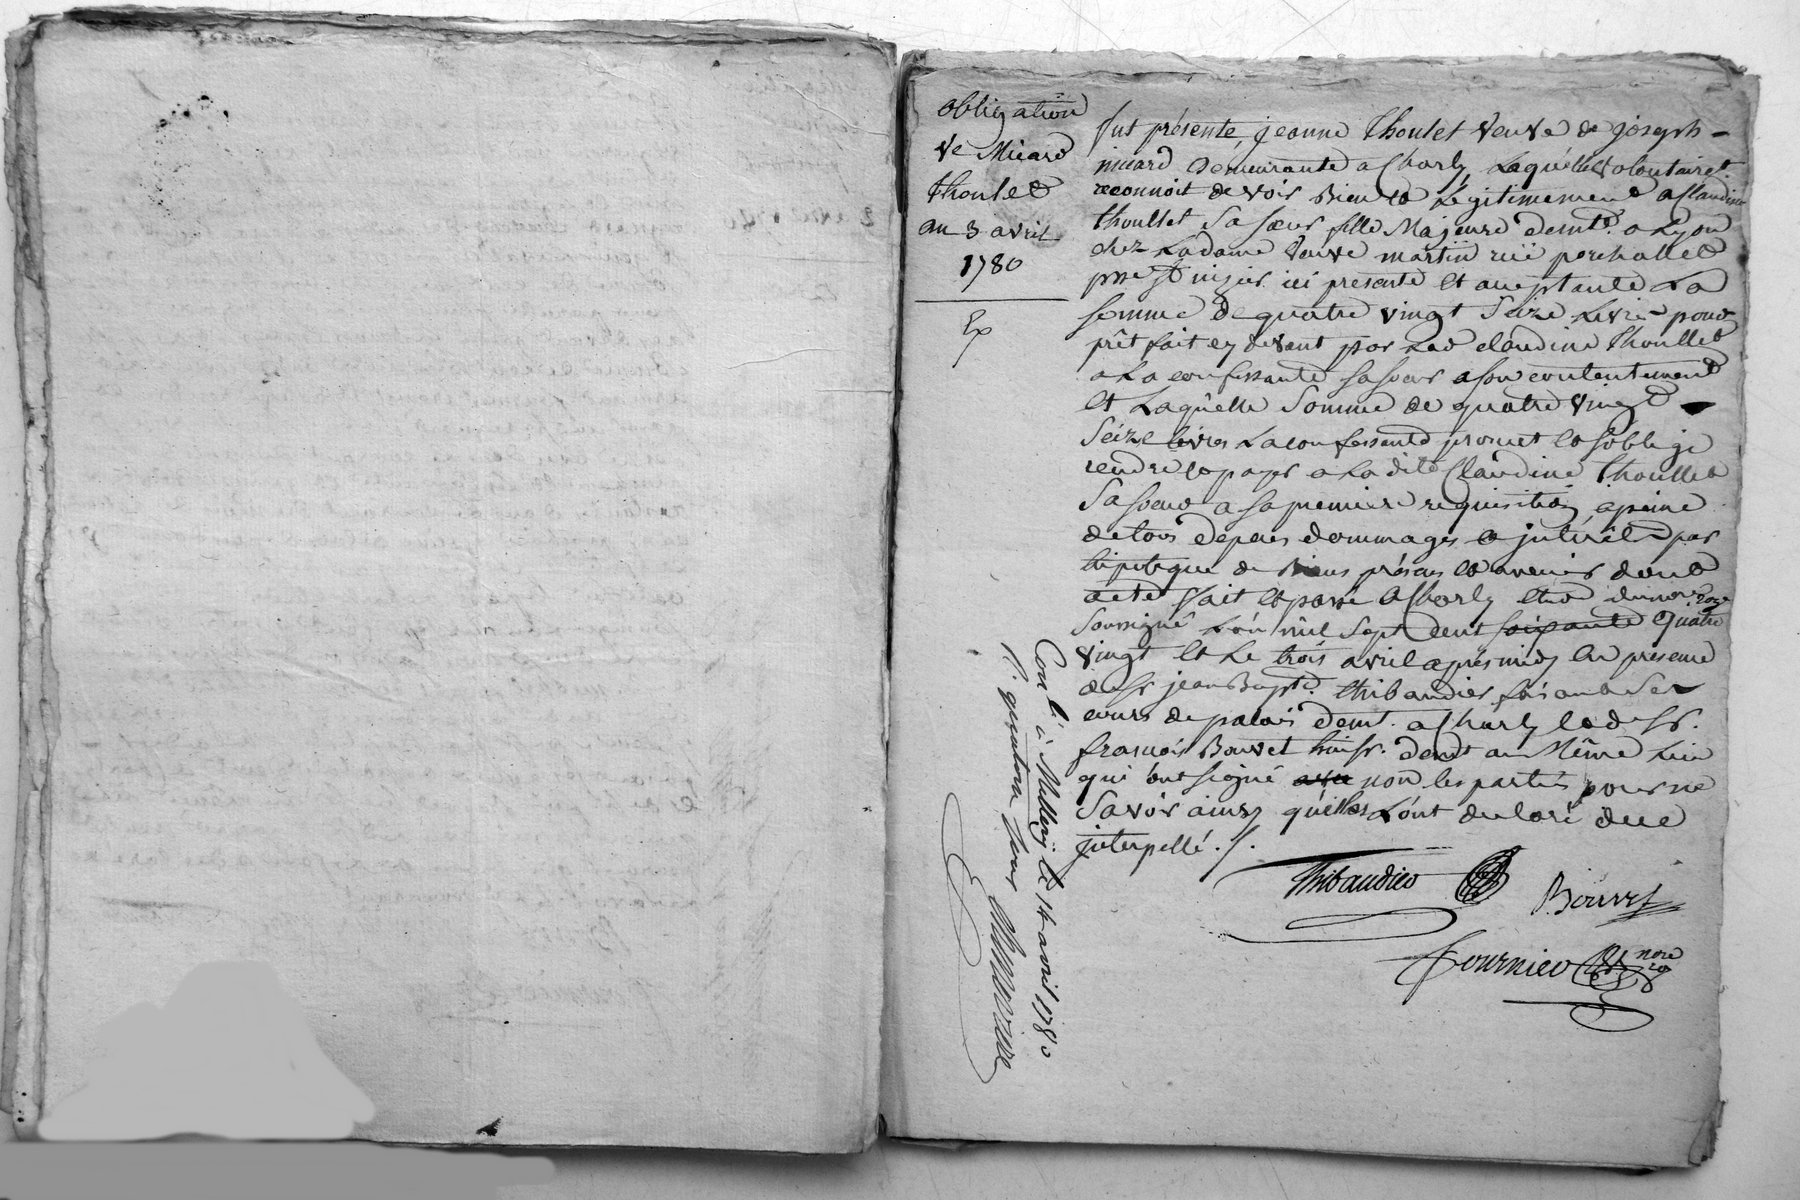 obligation
ve Micard
thoulet
au 3 avril
1780
Ex
fut présente, jeanne thoulet veuve de joseph
micard demeurante a Charly, Laquelle volontairet.
reconnoit devoir Bien et Légitimement a Claudine
thoullet sa sœur fille Majeure demte. a Lyon
chez La dame veuve martin ruë
psse St nizier ici presente et aceptante La
somme de quatre vingt Seize Livres pour
prêt fait cy devant par Lad claudine thoullet
a La confessante sa sœur a son contentement
et Laquelle somme de quatre vingt
Seize livres La confessante promet et soblige
rendre et payer a La dite Claudine thoullet
sa sœur a sa premiere requisition apeine
de tous depens dommages et jnterêts par
hipoteque de Biens présens et avenir dont
acte fait et passé a Charly etud du nore. roy.
soussigné L'an mil sept cent soixante quatre
vingt et Le trois avril après midy en presence
de sr jean Bapte. thibaudier faisant Ses
cours de palais demt. a Charly et de sr.
francois Bouvet huissr. demt au Même Lieu
qui ont signé avec non les parties pour ne
savoir ainsy qu'elles L'ont declaré dee
jnterpellé. /.
Thibaudier
Bouvet
Fournier
nore
roy
Conlé à Millery le 14 avril 1780
R. quatorze sous